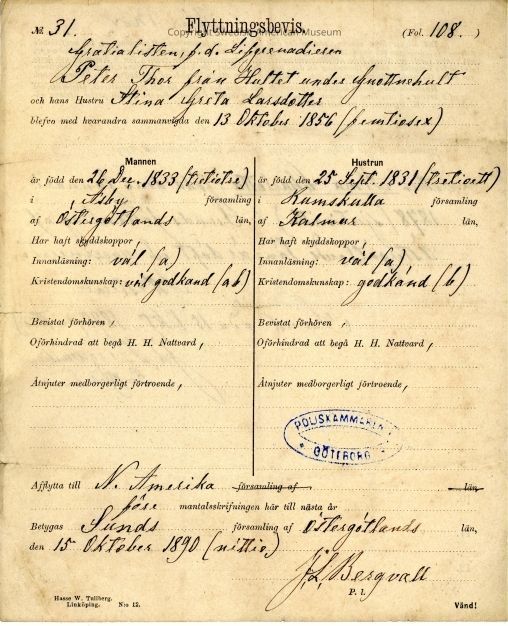 № 31. Flyttningsbevis. (Fol. 108.)
Copyright Swedish American Museum
Gratialisten, f.d. Lifgrenadieren
Peter Thor från Hultet under Gnottnehult
och hans Hustru Stina Greta Larsdotter
blefvo med hvarandra sammanvigda den 13 Oktober 1856 (femtiosex)
Mannen
är född den 26 Dec. 1833 (tretiotre)
i Asby församling
af Östergötlands län,
Har haft skyddskoppor,
Innanläsning: väl (a)
Kristendomskunskap: väl godkänd (ab)
Bevistat förhören,
Oförhindrad att begå H. H. Nattvard,
Åtnjuter medborgerligt förtroende,
Hustrun
är född den 25 Sept. 1831 (tretioett)
i Rumskulla församling
af Kalmar län,
Har haft skyddskoppor,
Innanläsning: väl (a)
Kristendomskunskap: godkänd (b)
Bevistat förhören,
Oförhindrad att begå H. H. Nattvard,
Åtnjuter medborgerligt förtroende,
POLISKAMMAREN
GÖTEBORG
Afflytta till N. Amerika församling af län,
före mantalsskrifningen här till nästa år
Betygas Sunds församling af Östergötlands län,
den 15 Oktober 1890 (nittio)
J. L. Bergvall
P. l.
Hasse W. Tullberg.
Linköping. N:o 12.
Vänd!